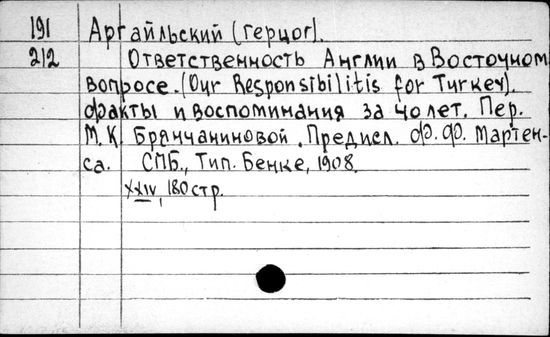 191 Аргайльский (герцог).
212 Ответственность Англии в Восточном
вопросе. (Our Responsibilitis for Turkey).
факты и воспоминания за 40 лет. Пер.
М.К. Брянчаниновой. Предисл. Ф.Ф. Мартен-
са. СПБ., Тип. Бенке, 1908.
XXIV, 180 стр.